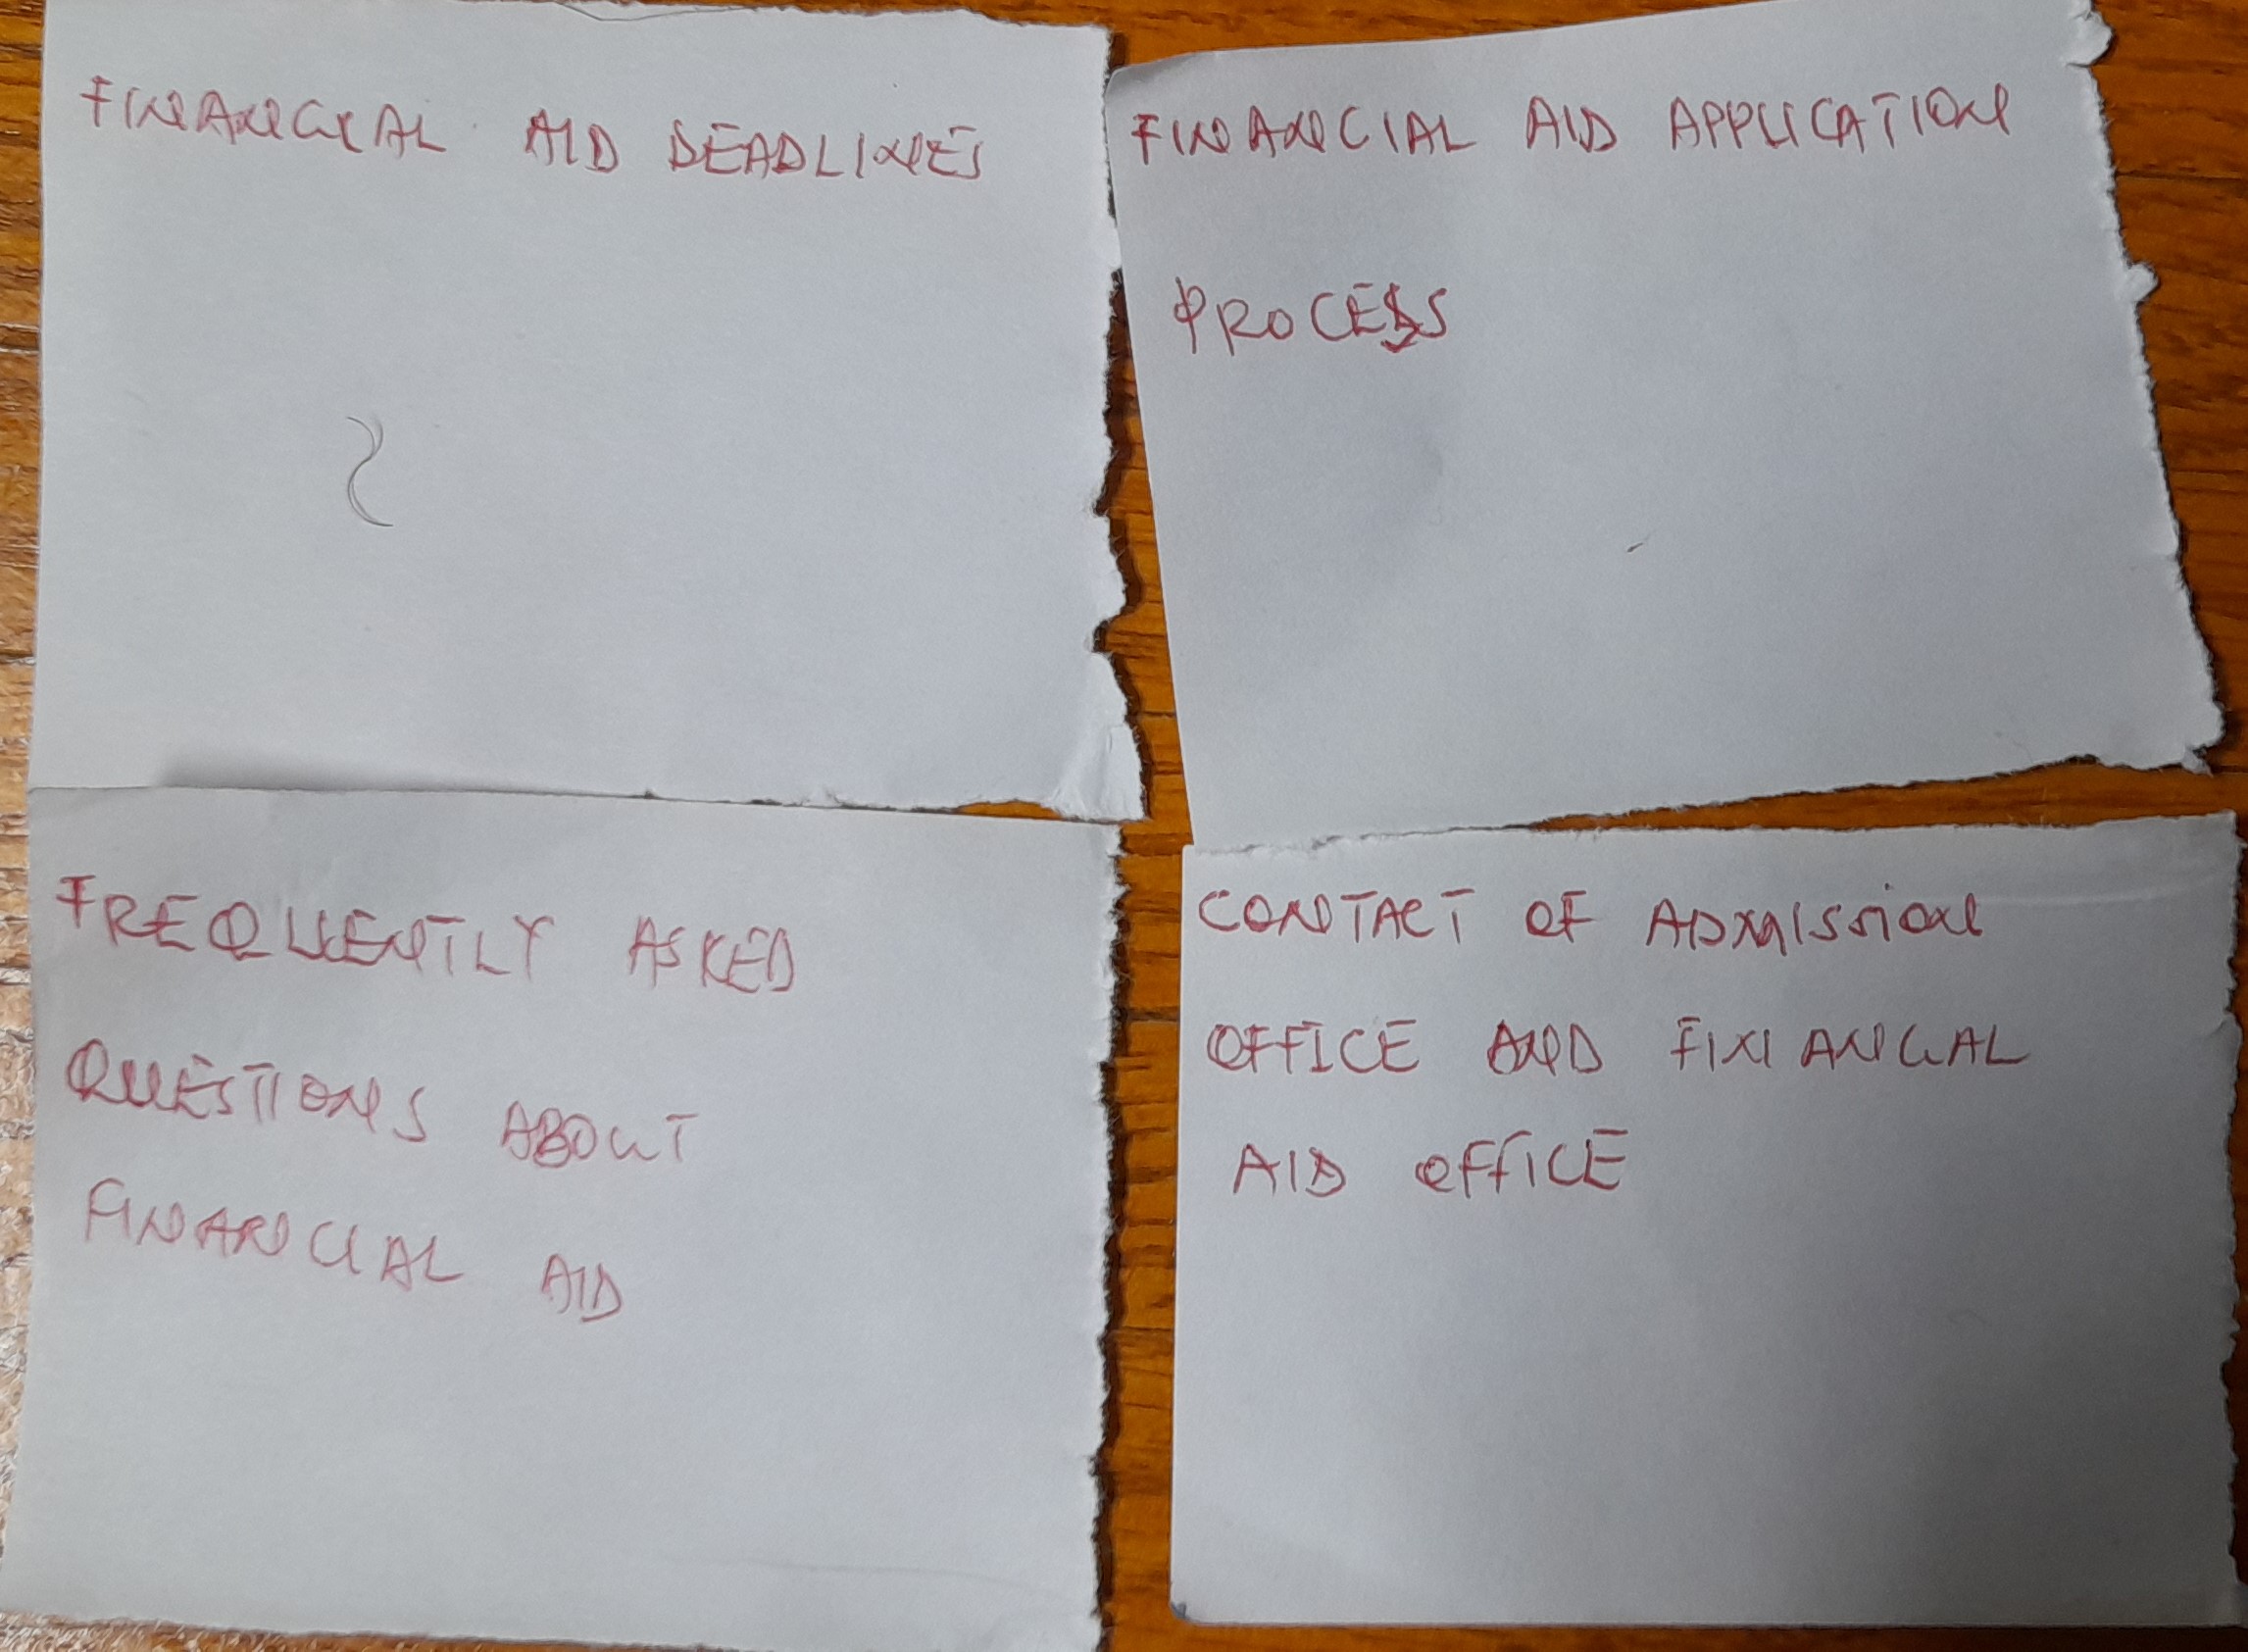 FINANCIAL AID DEADLINES
FINANCIAL AID APPLICATION
PROCESS
FREQUENTLY ASKED
QUESTIONS ABOUT
FINANCIAL AID
CONTACT OF ADMISSION
OFFICE AND FINANCIAL
AID OFFICE